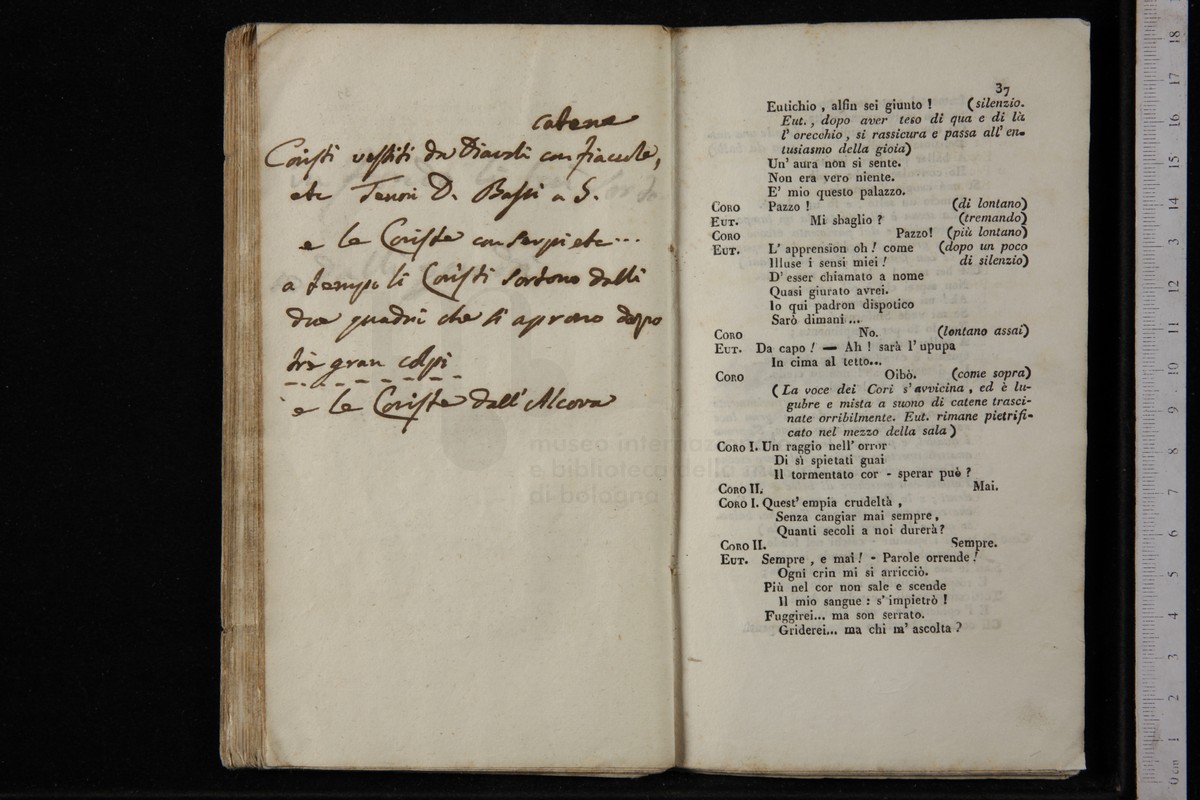 catene
Coristi vestiti da Diavoli con fiaccole,
etc Tenori D. Bassi a S.
e le Coriste con serpi etc...
a tempo li Coristi sortono dalli
due quadri che si aprono dopo
tre gran colpi
e le Coriste dall'Alcova
museo internazionale
e biblioteca della
di bologna
37
Eutichio , alfin sei giunto ! (silenzio.
Eut. , dopo aver teso di qua e di là
l' orecchio , si rassicura e passa all' en-
tusiasmo della gioia)
Un' aura non si sente.
Non era vero niente.
E' mio questo palazzo.
CORO Pazzo ! (di lontano)
EUT. Mi sbaglio ? (tremando)
CORO Pazzo! (più lontano)
EUT. L' apprension oh ! come (dopo un poco
Illuse i sensi miei ! di silenzio)
D' esser chiamato a nome
Quasi giurato avrei.
Io qui padron dispotico
Sarò dimani ...
CORO No. (lontano assai)
EUT. Da capo ! — Ah ! sarà l' upupa
In cima al tetto...
CORO Oibò. (come sopra)
( La voce dei Cori s' avvicina , ed è lu-
gubre e mista a suono di catene trasci-
nate orribilmente. Eut. rimane pietrifi-
cato nel mezzo della sala )
CORO I. Un raggio nell' orror
Di sì spietati guai
Il tormentato cor - sperar può ?
CORO II. Mai.
CORO I. Quest' empia crudeltà ,
Senza cangiar mai sempre ,
Quanti secoli a noi durerà?
CORO II. Sempre.
EUT. Sempre , e mai ! - Parole orrende !
Ogni crin mi si arricciò.
Più nel cor non sale e scende
Il mio sangue : s' impietrò !
Fuggirei... ma son serrato.
Griderei... ma chi m' ascolta ?
0 cm 1 2 3 4 5 6 7 8 9 10 11 12 13 14 15 16 17 18